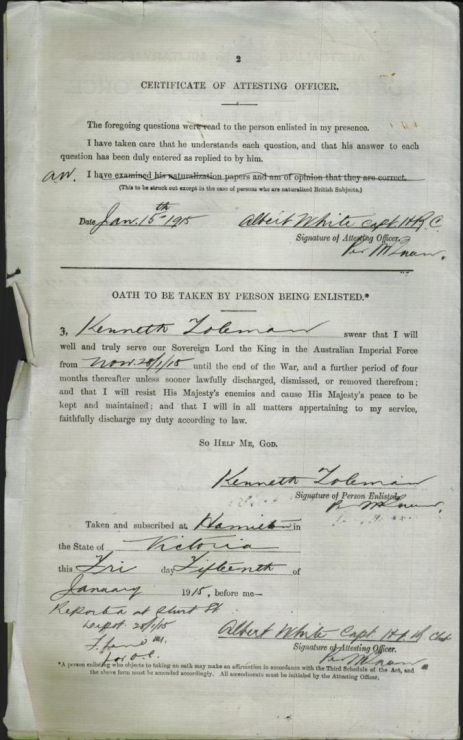 2
CERTIFICATE OF ATTESTING OFFICER.
The foregoing questions were read to the person enlisted in my presence.
I have taken care that he understands each question, and that his answer to each
question has been duly entered as replied to by him.
I have examined his naturalization papers and am of opinion that they are correct.
(This to be struck out except in the case of persons who are naturalized British Subjects.)
Date Jan. 15th 1915 Albert White Capt
Signature of Attesting Officer.
OATH TO BE TAKEN BY PERSON BEING ENLISTED.*
Kenneth Toleman swear that I will
well and truly serve our Sovereign Lord the King in the Australian Imperial Force
from until the end of the War, and a further period of four
months thereafter unless sooner lawfully discharged, dismissed, or removed therefrom;
and that I will resist His Majesty's enemies and cause His Majesty's peace to be
kept and maintained; and that I will in all matters appertaining to my service,
faithfully discharge my duty according to law.
SO HELP ME, GOD.
Kenneth Toleman
Signature of Person Enlisted.
Taken and subscribed at Hamilton in
the State of Victoria
this Fri day Fifteenth of
January 1915, before me—
Albert White Capt
Signature of Attesting Officer.
*A person enlisting who objects to taking an oath may make an affirmation in accordance with the Third Schedule of the Act, and
the above form must be amended accordingly. All amendments must be initialed by the Attesting Officer.